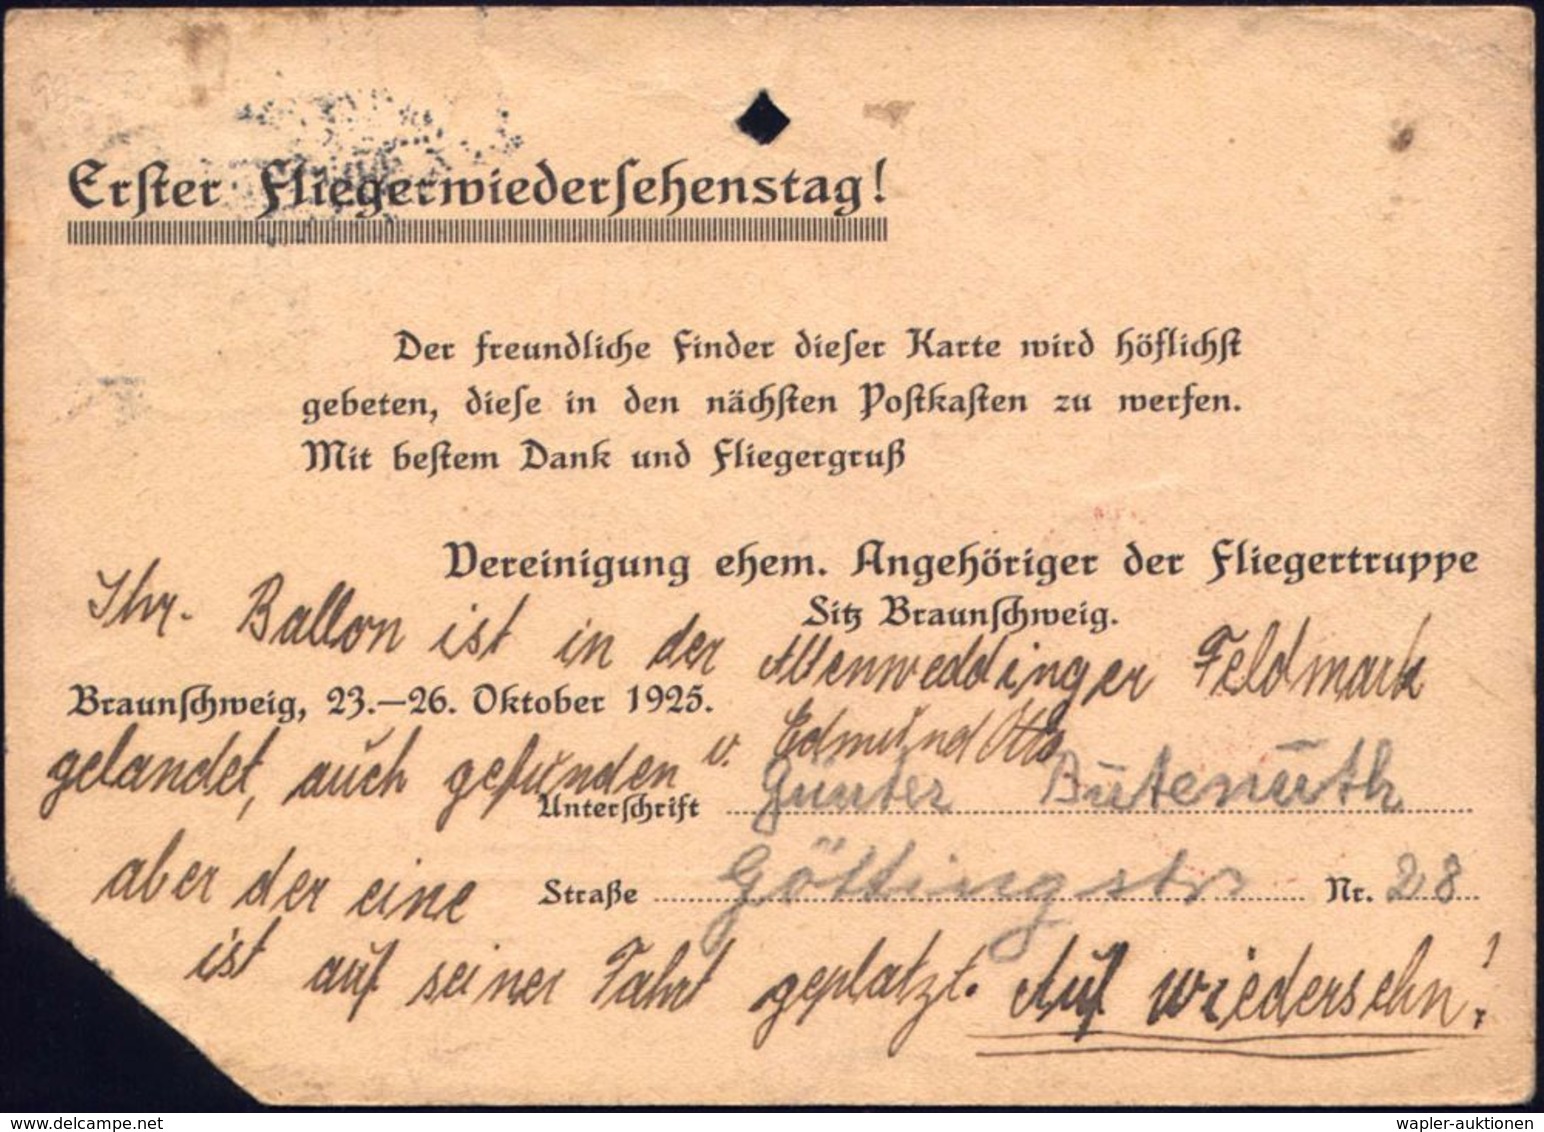 Erster Fliegerwiedersehenstag!
Der freundliche Finder dieser Karte wird höflichst
gebeten, diese in den nächsten Postkasten zu werfen.
Mit bestem Dank und Fliegergruß
Vereinigung ehem. Angehöriger der Fliegertruppe
Sitz Braunschweig.
Ihr. Ballon ist in der Altenweddinger Feldmark
Braunschweig, 23.—26. Oktober 1925.
gelandet, auch gefunden v. Edmund Otto
Unterschrift Günter Butenuth
aber der eine
Straße Göttingstr Nr. 28
ist auf seiner Fahrt geplatzt. Auf wiedersehn!
delcampe.net
wapler-auktionen